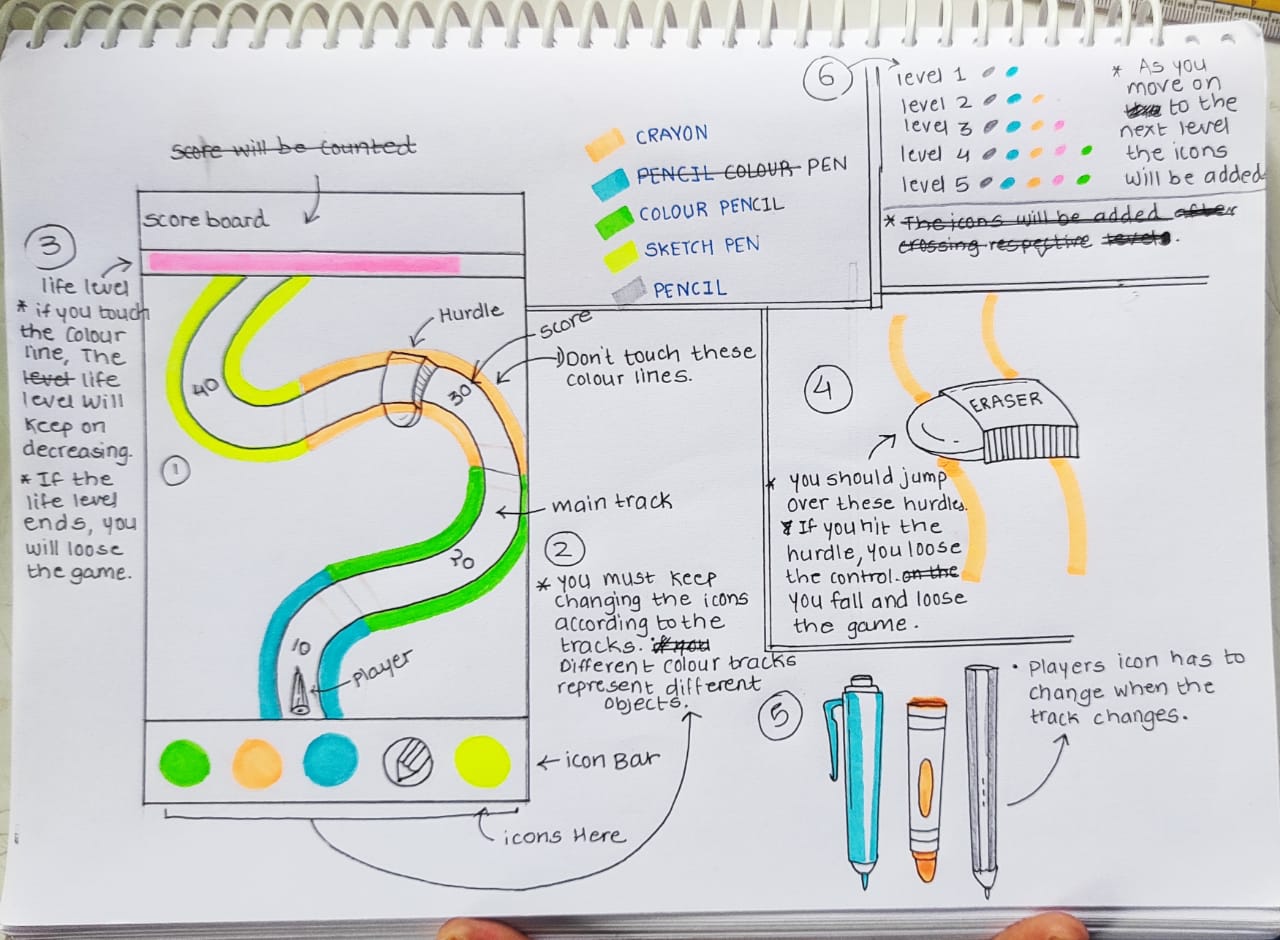 score will be counted
score board
3
life level
* if you touch
the colour
line, The
level life
level will
keep on
decreasing.
* If the
life level
ends, you
will loose
the game.
CRAYON
PENCIL COLOUR PEN
COLOUR PENCIL
SKETCH PEN
PENCIL
6
level 1
level 2
level 3
level 4
level 5
* As you
move on
to the
next level
the icons
will be added
* The icons will be added after
crossing respective levels.
Hurdle
score
Don't touch these
colour lines.
40
30
1
main track
20
10
Player
2
* you must keep
changing the icons
according to the
tracks. if you
Different colour tracks
represent different
objects.
icon Bar
icons Here
4
ERASER
* you should jump
over these hurdles.
* If you hit the
hurdle, you loose
the control. on the
You fall and loose
the game.
5
• Players icon has to
change when the
track changes.